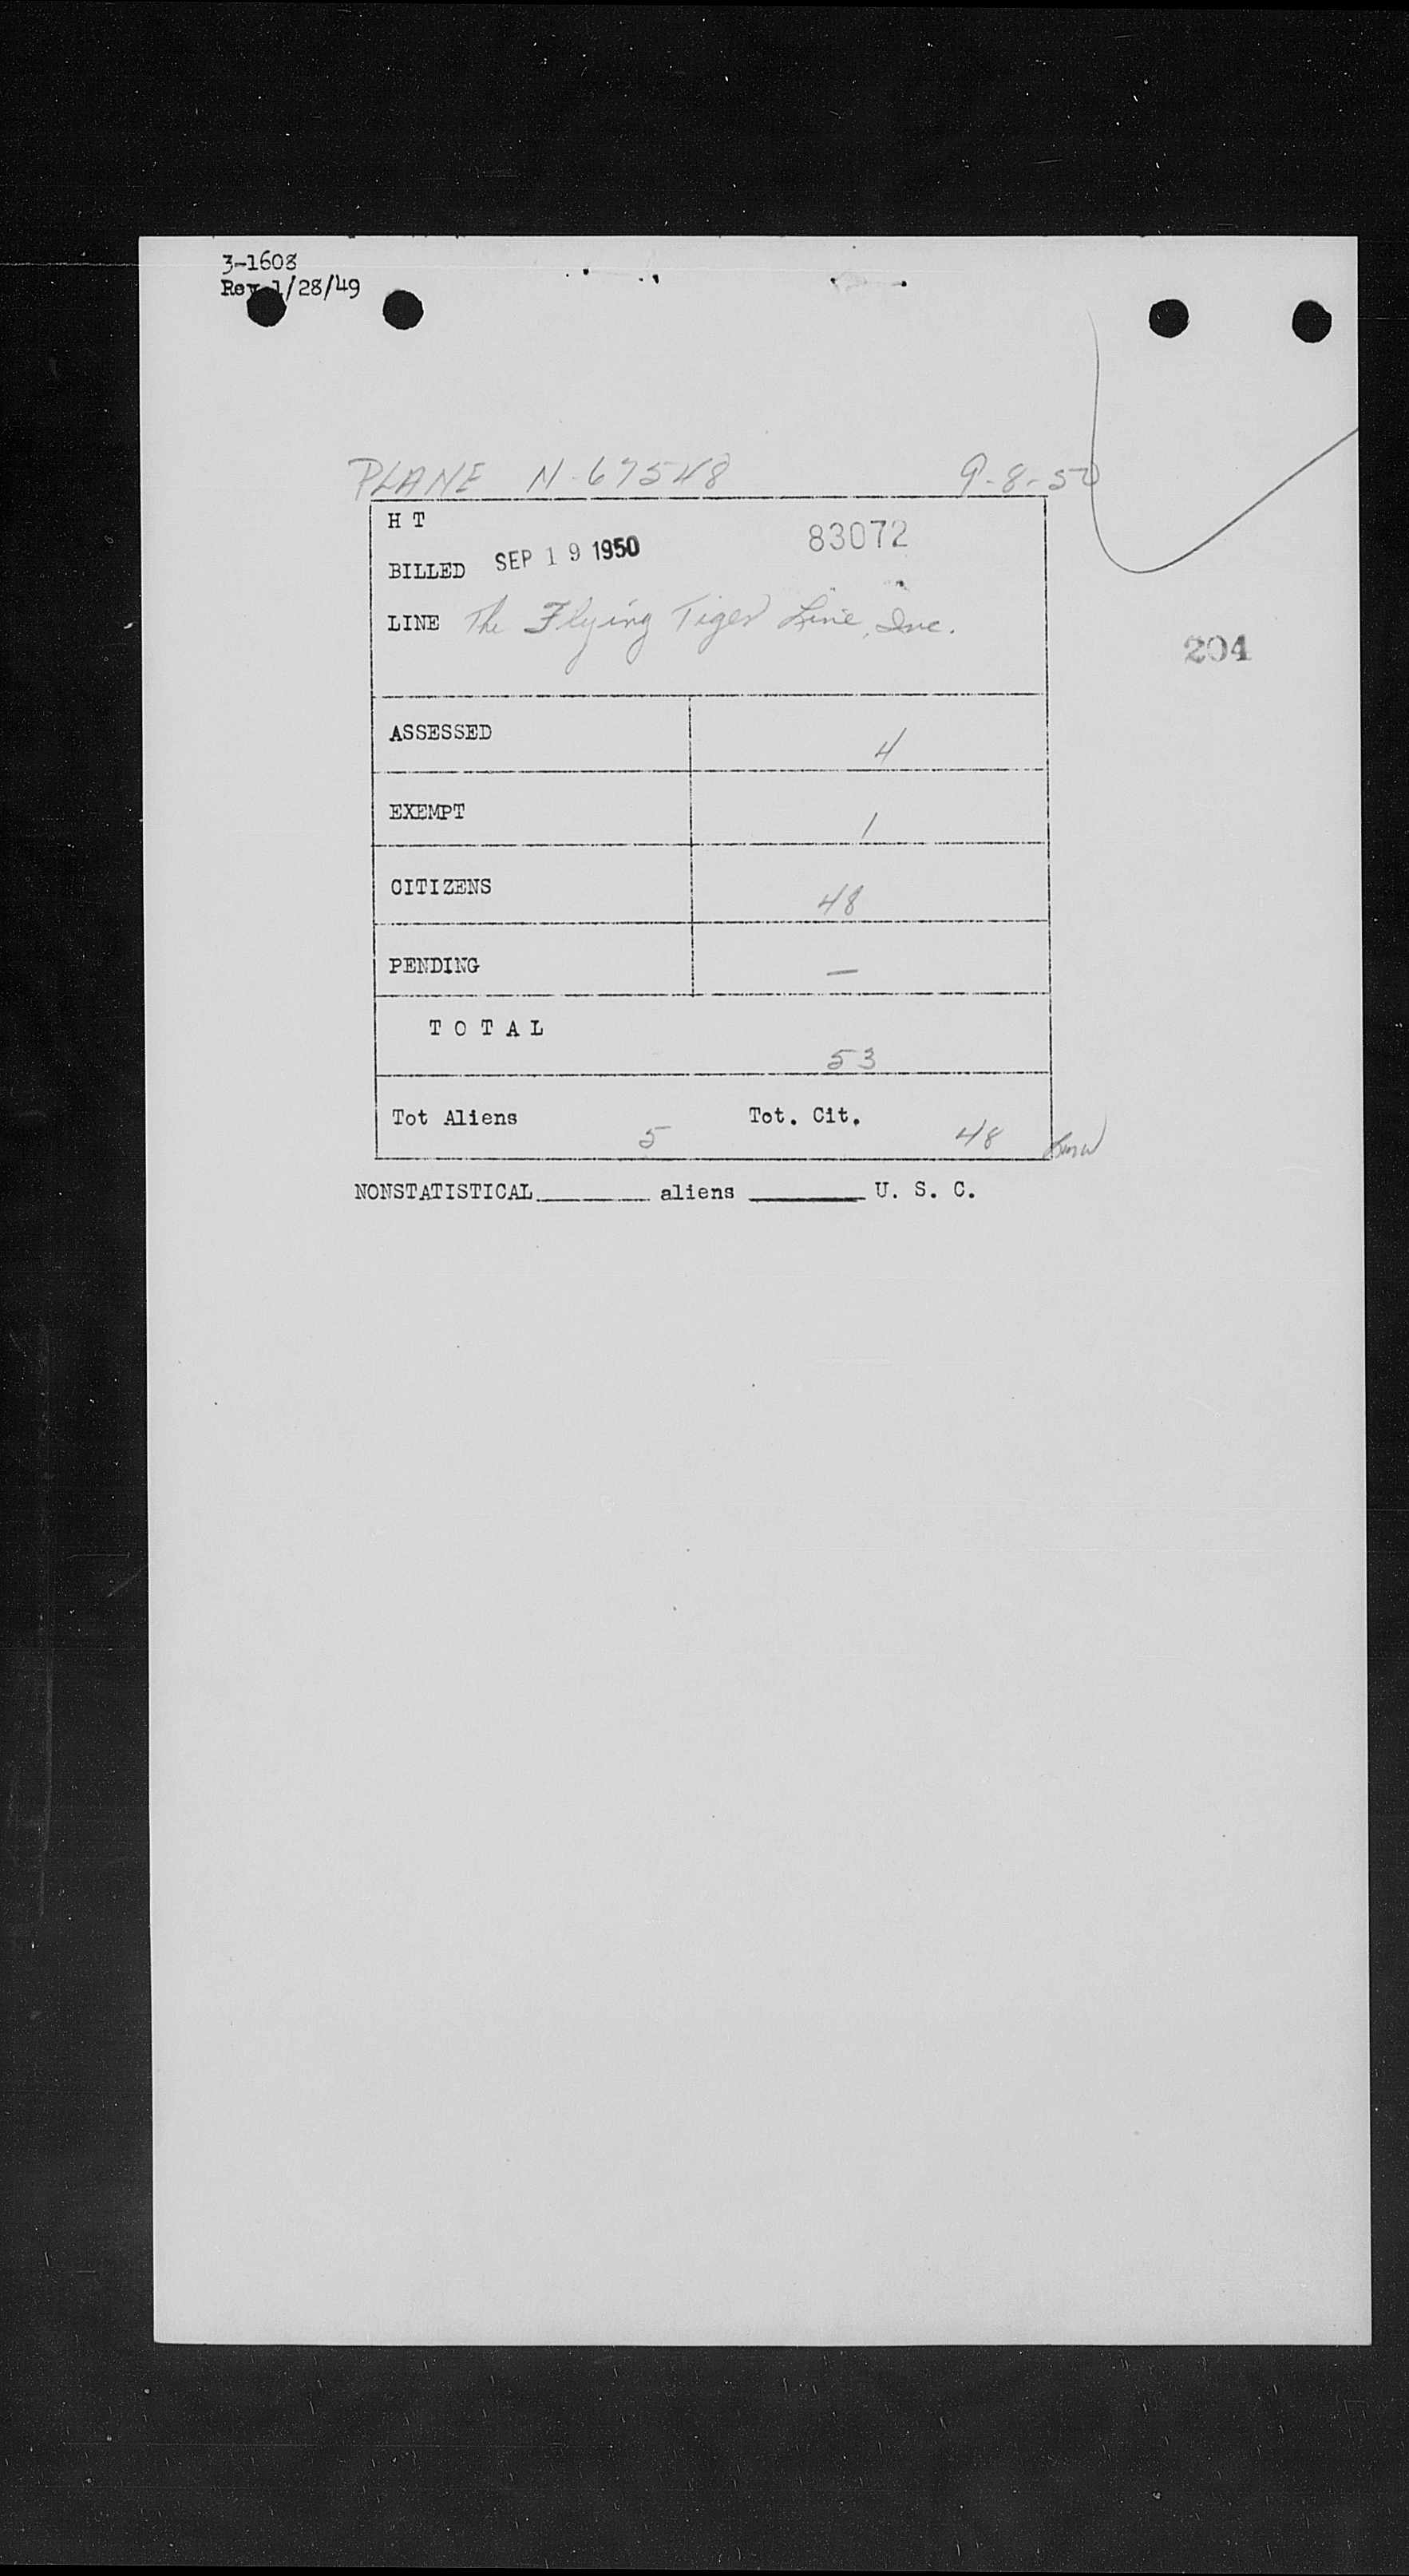 3-1608
Rev 1/28/49
PLANE N-67548 9-8-50
H T
83072
BILLED SEP 19 1950
LINE The Flying Tiger Line, Inc.
204
ASSESSED 4
EXEMPT 1
CITIZENS 48
PENDING —
T O T A L
53
Tot Aliens 5 Tot. Cit. 48
NONSTATISTICAL________ aliens ________ U. S. C.